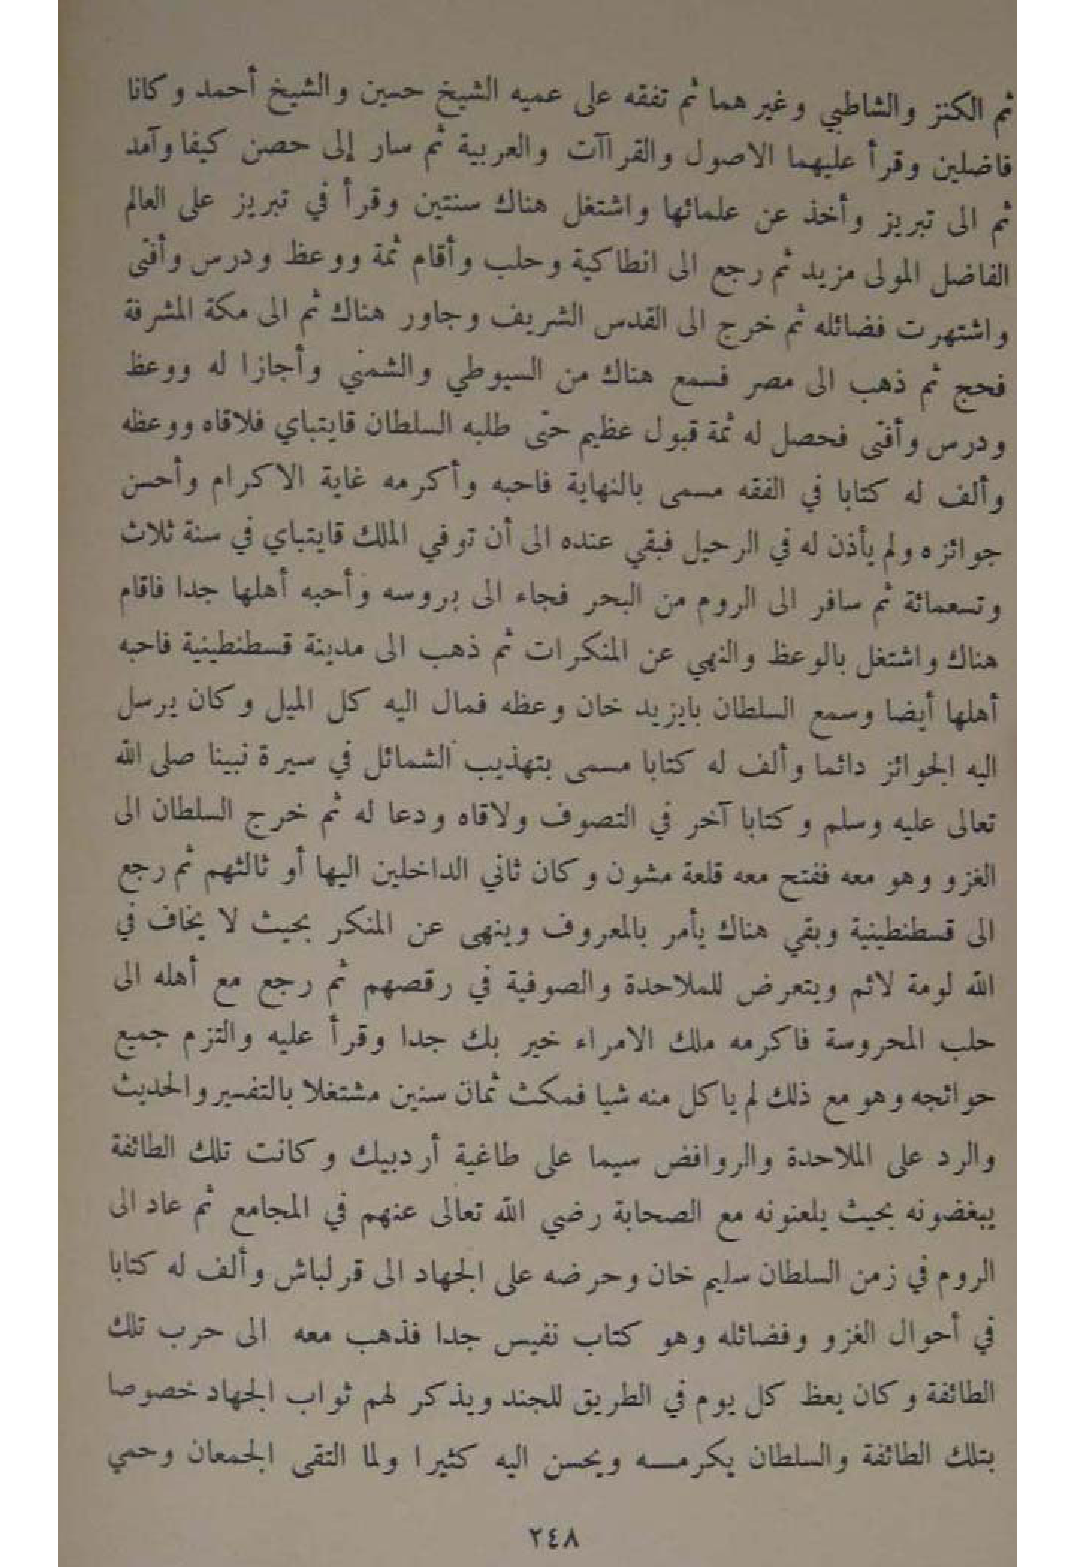 ثم الكنز والشاطبي وغيرهما ثم تفقه على عميه الشيخ حسين والشيخ أحمد وكانا
فاضلين وقرأ عليهما الاصول والقراآت والعربية ثم سار إلى حصن كيفا وآمد
ثم الى تبريز وأخذ عن علمائها واشتغل هناك سنتين وقرأ في تبريز على العالم
الفاضل المولى مزيد ثم رجع الى انطاكية وحلب وأقام ثمة ووعظ ودرس وأفتى
واشتهرت فضائله ثم خرج الى القدس الشريف وجاور هناك ثم الى مكة المشرفة
فحج ثم ذهب الى مصر فسمع هناك من السيوطي والشمني وأجازا له ووعظ
ودرس وأفتى فحصل له ثمة قبول عظيم حتى طلبه السلطان قايتباي فلاقاه ووعظه
وألف له كتابا في الفقه مسمى بالنهاية فاحبه وأكرمه غاية الاكرام وأحسن
جوائزه ولم يأذن له في الرحيل فبقي عنده الى أن توفي الملك قايتباي في سنة ثلاث
وتسعمائة ثم سافر الى الروم من البحر فجاء الى بروسه وأحبه أهلها جدا فاقام
هناك واشتغل بالوعظ والنهي عن المنكرات ثم ذهب الى مدينة قسطنطينية فاحبه
أهلها أيضا وسمع السلطان بايزيد خان وعظه فمال اليه كل الميل وكان يرسل
اليه الجوائز دائما وألف له كتابا مسمى بتهذيب الشمائل في سيرة نبينا صلى الله
تعالى عليه وسلم وكتابا آخر في التصوف ولاقاه ودعا له ثم خرج السلطان الى
الغزو وهو معه ففتح معه قلعة مشون وكان ثاني الداخلين اليها أو ثالثهم ثم رجع
الى قسطنطينية وبقي هناك يأمر بالمعروف وينهى عن المنكر بحيث لا يخاف في
الله لومة لائم ويتعرض للملاحدة والصوفية في رقصهم ثم رجع مع أهله الى
حلب المحروسة فاكرمه ملك الامراء خير بك جدا وقرأ عليه والتزم جميع
حوائجه وهو مع ذلك لم ياكل منه شيا فمكث ثمان سنين مشتغلا بالتفسير والحديث
والرد على الملاحدة والروافض سيما على طاغية أردبيك وكانت تلك الطائفة
يبغضونه بحيث يلعنونه مع الصحابة رضي الله تعالى عنهم في المجامع ثم عاد الى
الروم في زمن السلطان سليم خان وحرضه على الجهاد الى قرلباش وألف له كتابا
في أحوال الغزو وفضائله وهو كتاب نفيس جدا فذهب معه الى حرب تلك
الطائفة وكان يعظ كل يوم في الطريق للجند ويذكر لهم ثواب الجهاد خصوصا
بتلك الطائفة والسلطان يكرمـــه ويحسن اليه كثيرا ولما التقى الجمعان وحمي
٢٤٨